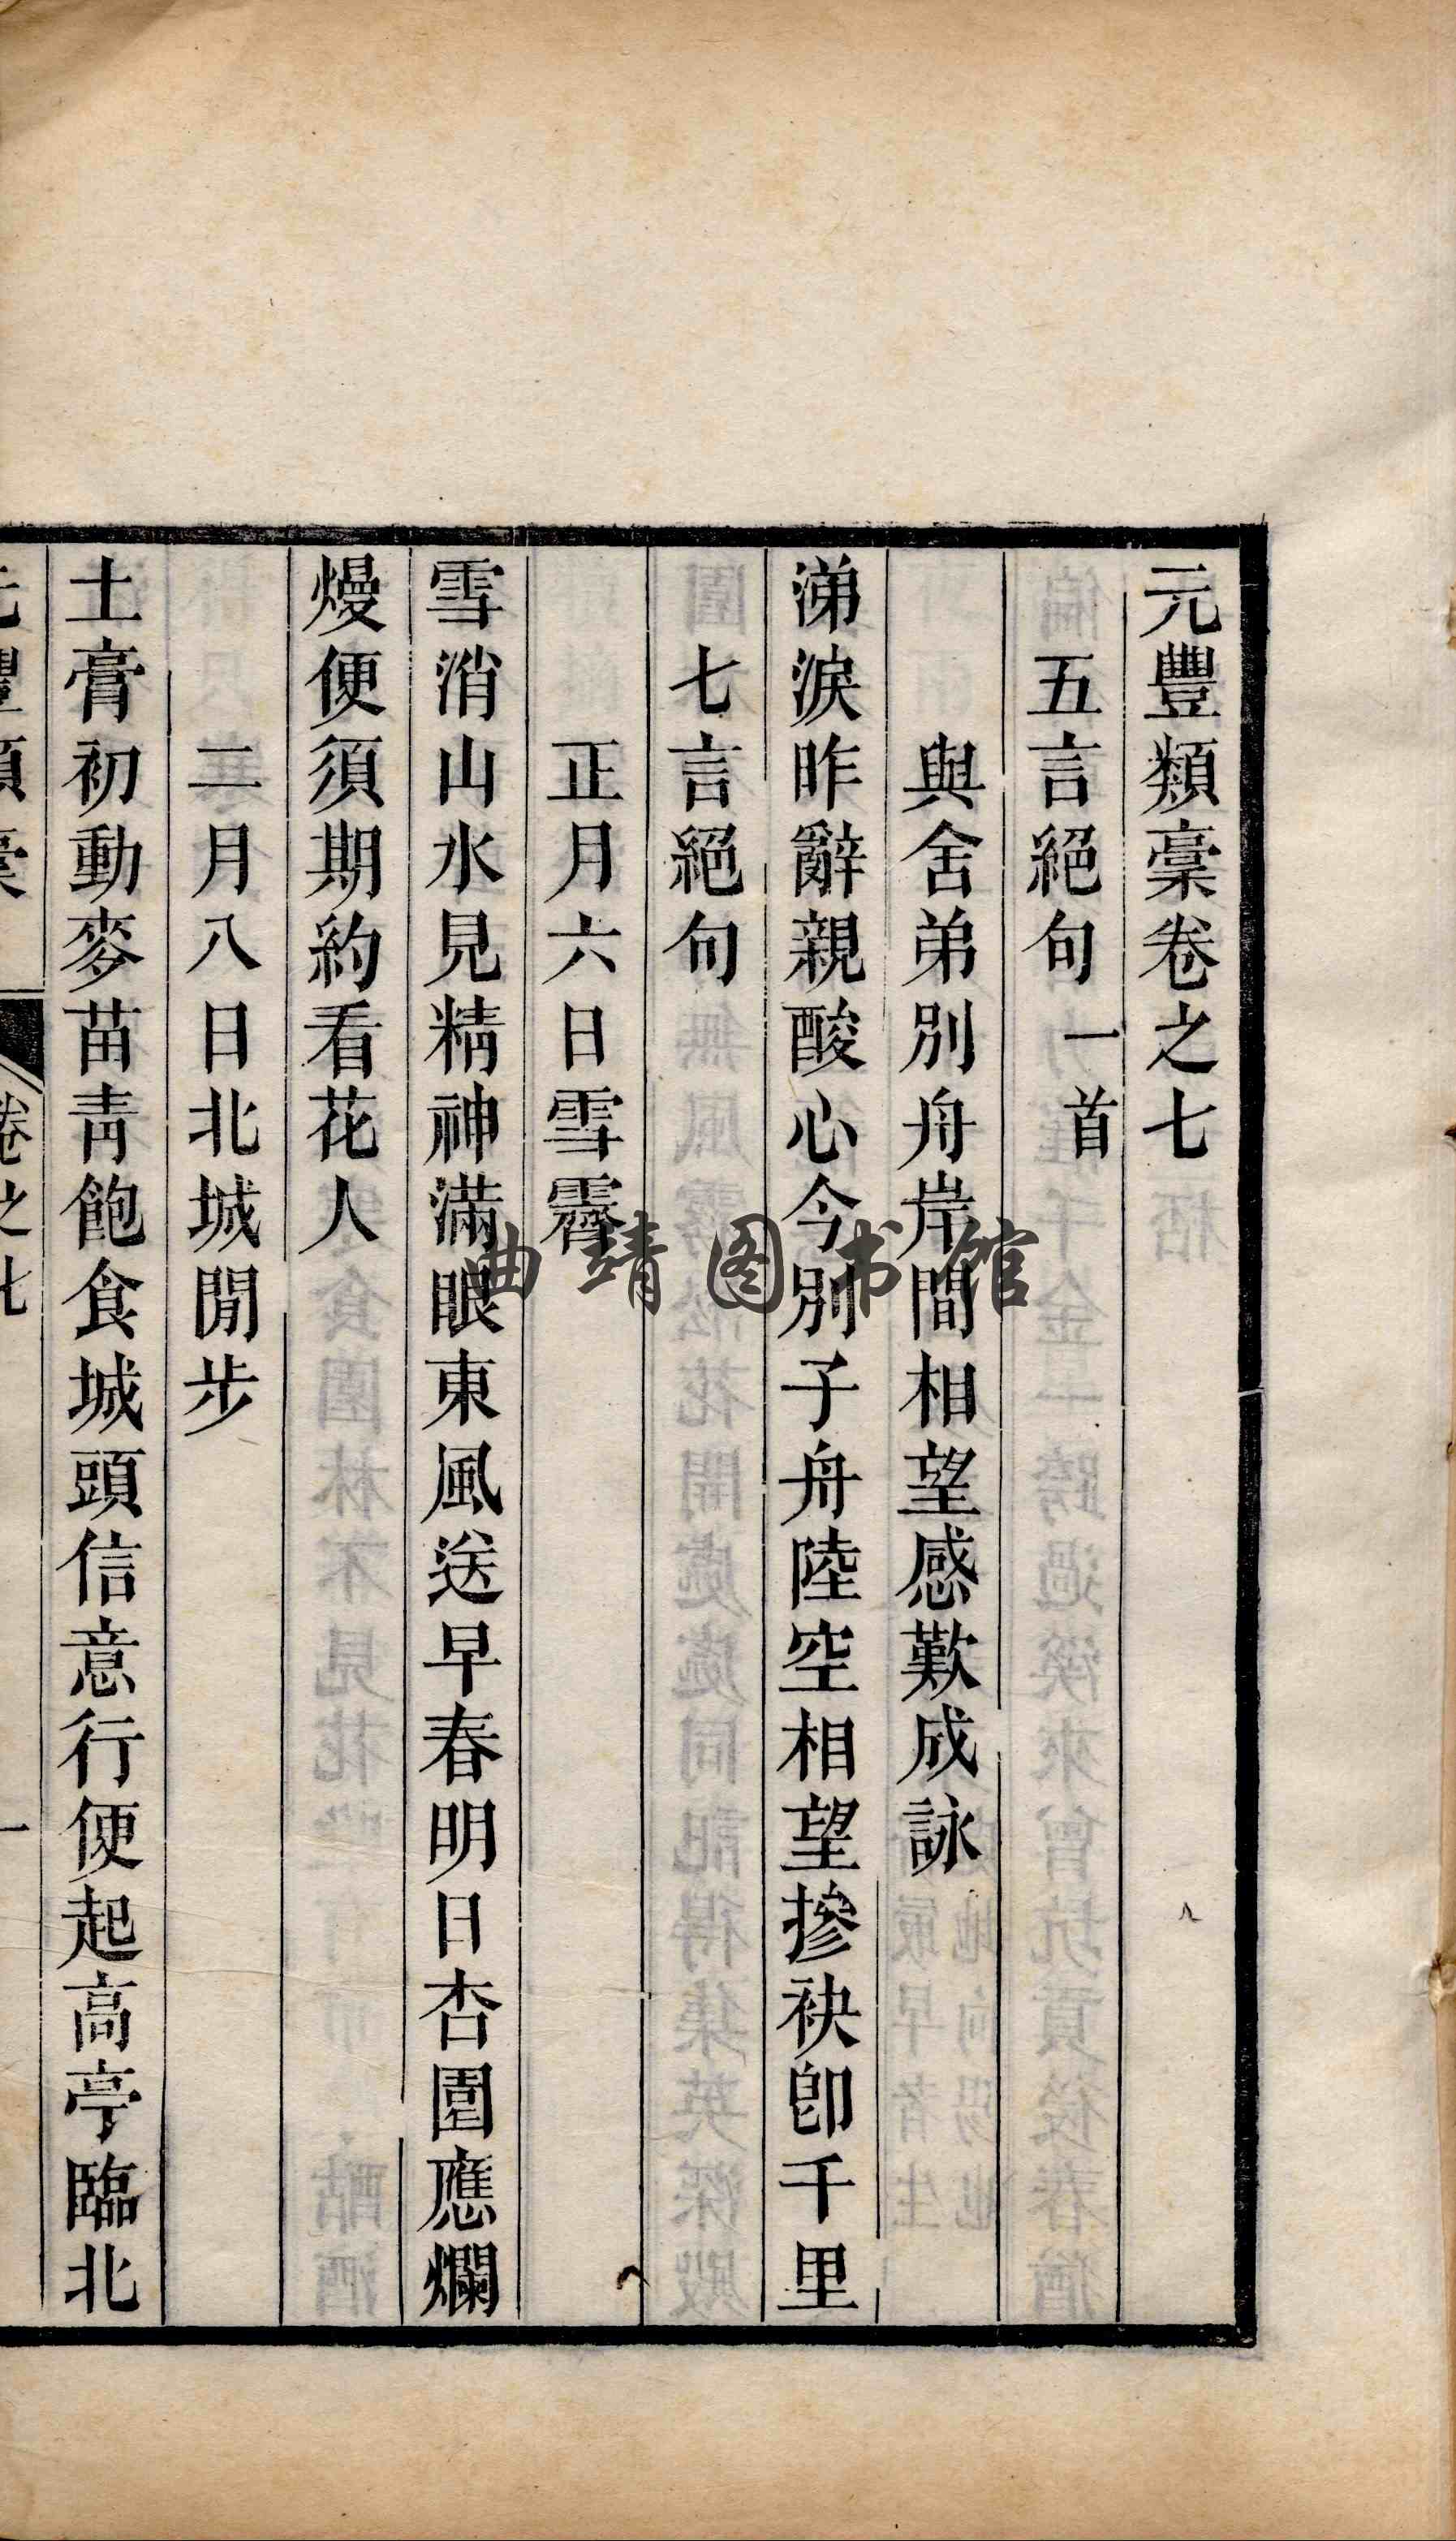 元豐類稾卷之七
五言絕句一首
與舍弟別舟岸間相望感歎成詠
涕淚昨辭親酸心今別子舟陸空相望摻袂卽千里
七言絕句
正月六日雪霽
雪消山水見精神滿眼東風送早春明日杏園應爛
熳便須期約看花人
二月八日北城閒步
土膏初動麥苗青飽食城頭信意行便起高亭臨北
卷之七
一
曲靖图书馆